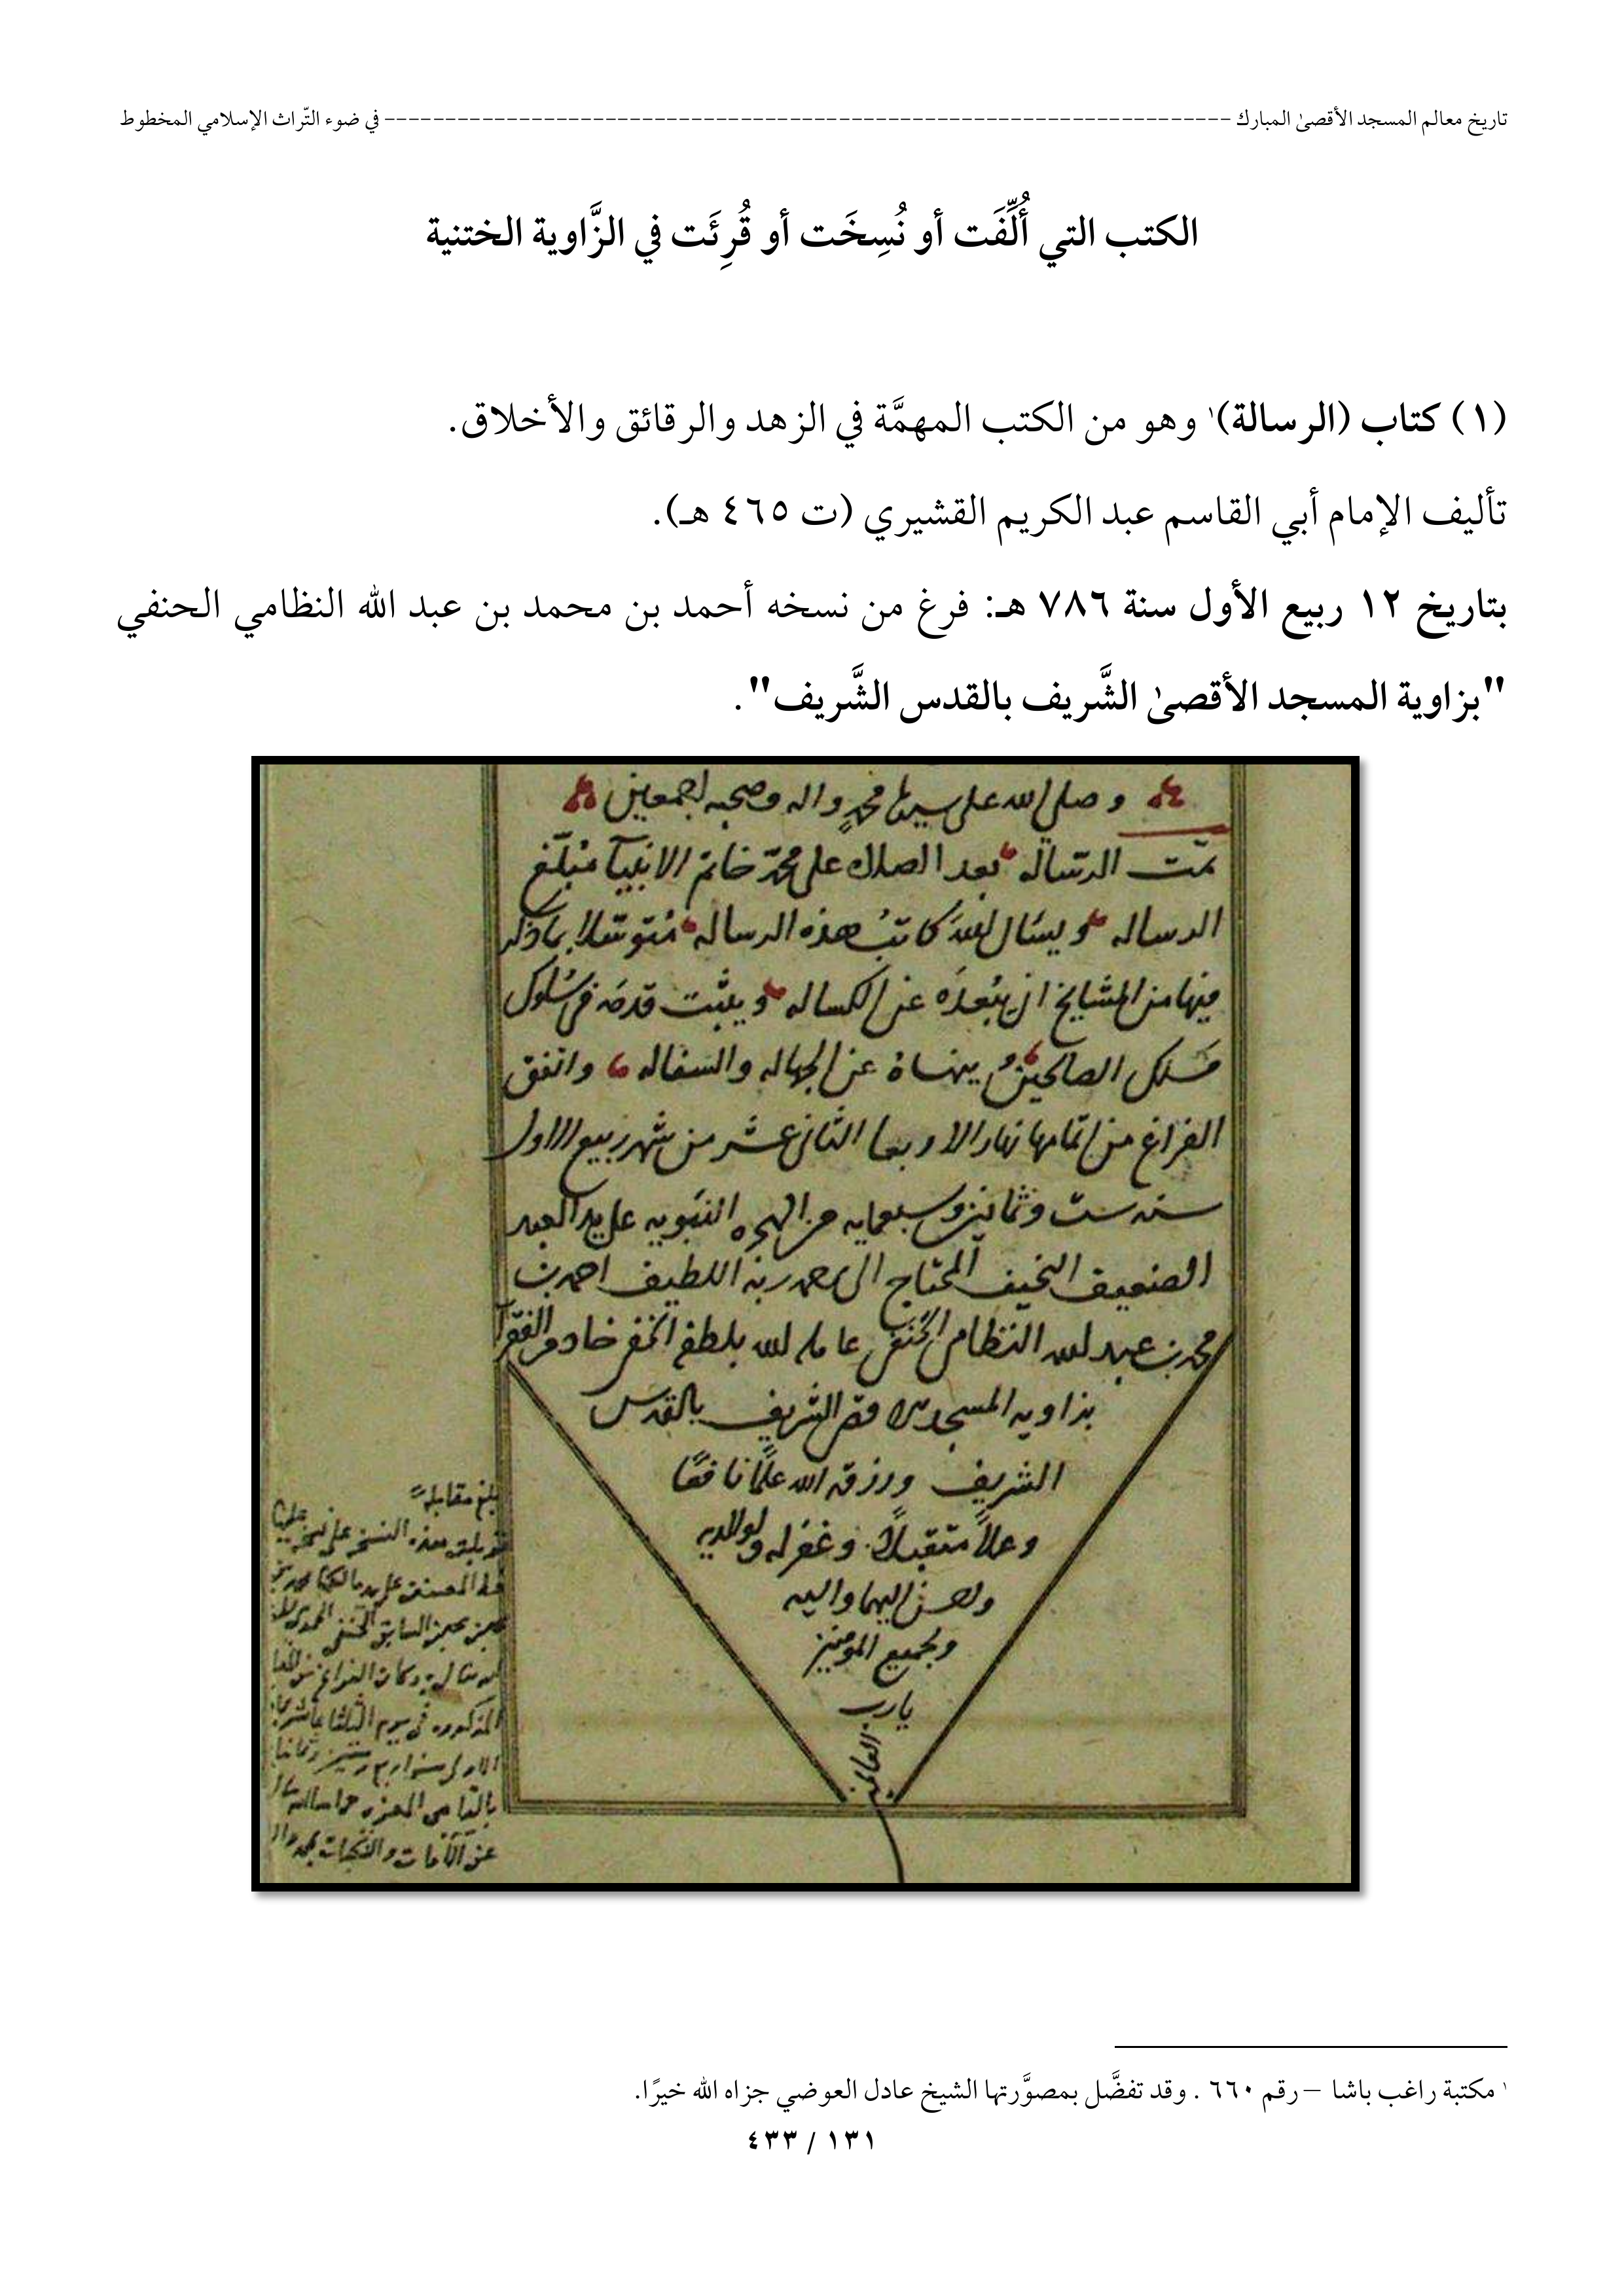 تاريخ معالم المسجد الأقصىٰ المبارك ---------------------------------------------------------------------- في ضوء التّراث الإسلامي المخطوط
الكتب التي أُلِّفَت أو نُسِخَت أو قُرِئَت في الزَّاوية الختنية
(١) كتاب (الرسالة)١ وهو من الكتب المهمَّة في الزهد والرقائق والأخلاق.
تأليف الإمام أبي القاسم عبد الكريم القشيري (ت ٤٦٥ هـ).
بتاريخ ١٢ ربيع الأول سنة ٧٨٦ هـ: فرغ من نسخه أحمد بن محمد بن عبد الله النظامي الحنفي
"بزاوية المسجد الأقصىٰ الشَّريف بالقدس الشَّريف".
وصلى الله على سيدنا محمد واله وصحبه اجمعين
تمت الرساله بعد الصلاة على محمد خاتم الانبيآ مبلغ
الرساله ويسال الله كاتب هذه الرساله متوسلا بما ذكر
فيها من المشايخ ان يبعده عن الكساله ويثبت قدمه في سلوك
مسلك الصالحين وينهاه عن الجهاله والسفاله واتفق
الفراغ من اتمامها نهار الاربعا الثاني عشر من شهر ربيع الاول
سنه ست وثمانين وسبعمايه من الهجره النبويه على يد العبد
الضعيف النحيف المحتاج الى رحمه ربه اللطيف احمد بن
محمد بن عبد الله النظامي الحنفي عامله الله بلطفه الخفي خادم الفقرآ
بزاويه المسجد الاقصى الشريف بالقدس
الشريف ورزقه الله علمًا نافعًا
وعملاً متقبلاً وغفر له ولوالديه
واحسن اليهما واليه
ولجميع المومنين
يارب
العالمين
بلغ مقابلة
هذه النسخ على نسخه
المصنف على يد
الحنفي
الفراغ من
المذكوره في يوم الثلثا عاشر
عن الآفات والنكبات
١ مكتبة راغب باشا – رقم ٦٦٠ . وقد تفضَّل بمصوَّرتها الشيخ عادل العوضي جزاه الله خيرًا.
١٣١ / ٤٣٣